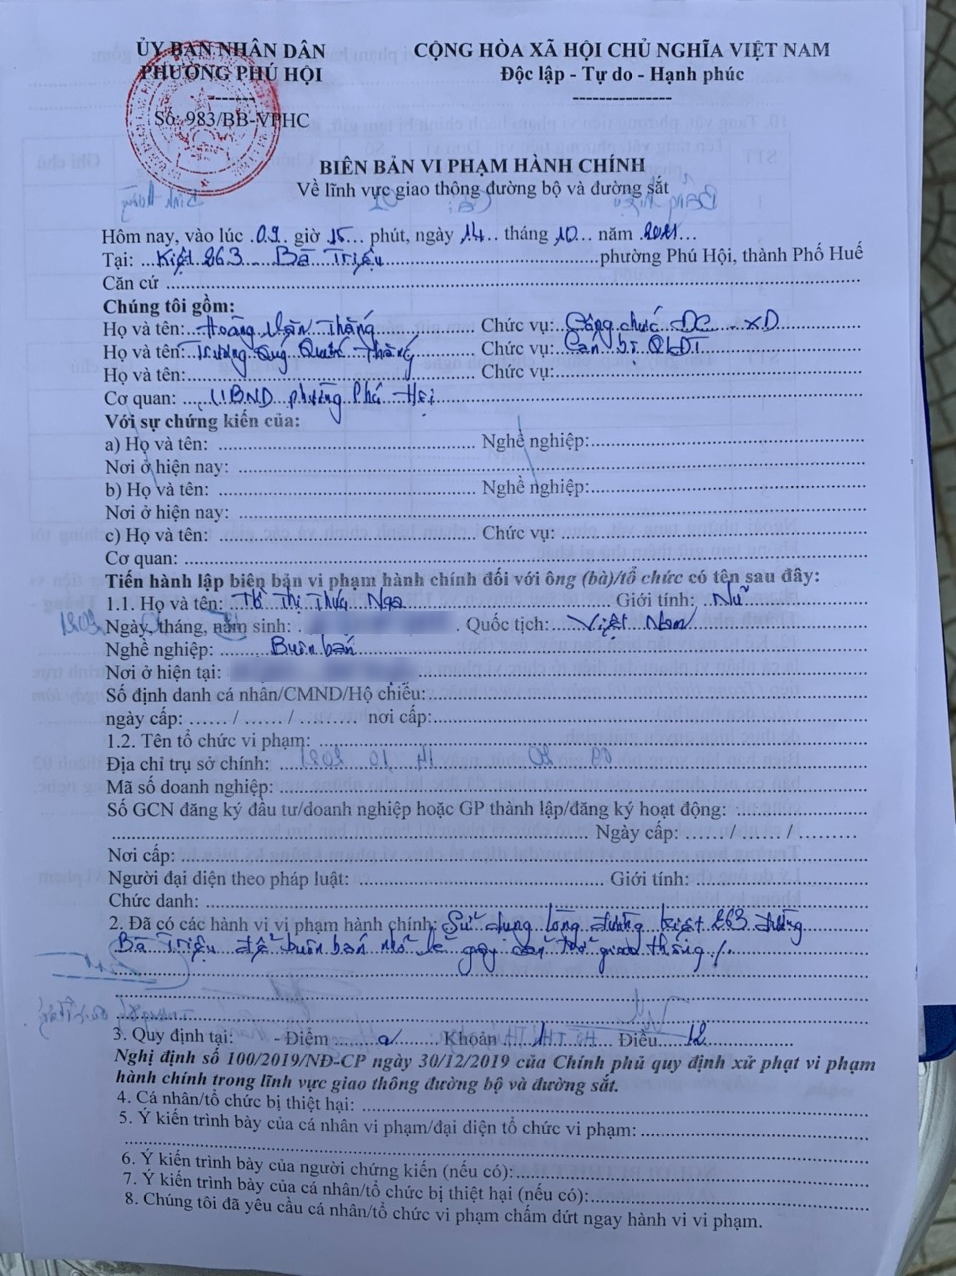 ỦY BAN NHÂN DÂN
PHƯỜNG PHÚ HỘI
-------
Số: 983/BB-VPHC
CỘNG HÒA XÃ HỘI CHỦ NGHĨA VIỆT NAM
Độc lập - Tự do - Hạnh phúc
---------------
BIÊN BẢN VI PHẠM HÀNH CHÍNH
Về lĩnh vực giao thông đường bộ và đường sắt
Hôm nay, vào lúc 09 giờ 15 phút, ngày 14 tháng 10 năm 2021
Tại: Kiệt 263 Bà Triệu phường Phú Hội, thành Phố Huế
Căn cứ
Chúng tôi gồm:
Họ và tên: Hoàng Văn Thắng Chức vụ: Công chức ĐC - XD
Họ và tên: Trương Quý Quốc Thắng Chức vụ: Cán bộ QLĐT
Họ và tên: Chức vụ:
Cơ quan: UBND phường Phú Hội
Với sự chứng kiến của:
a) Họ và tên: Nghề nghiệp:
Nơi ở hiện nay:
b) Họ và tên: Nghề nghiệp:
Nơi ở hiện nay:
c) Họ và tên: Chức vụ:
Cơ quan:
Tiến hành lập biên bản vi phạm hành chính đối với ông (bà)/tổ chức có tên sau đây:
1.1. Họ và tên: Thị Thúy Nga Giới tính: Nữ
Ngày, tháng, năm sinh: Quốc tịch: Việt Nam
Nghề nghiệp: Buôn bán
Nơi ở hiện tại:
Số định danh cá nhân/CMND/Hộ chiếu:
ngày cấp: ...... / ...... / ...... nơi cấp:
1.2. Tên tổ chức vi phạm:
Địa chỉ trụ sở chính:
Mã số doanh nghiệp:
Số GCN đăng ký đầu tư/doanh nghiệp hoặc GP thành lập/đăng ký hoạt động:
Ngày cấp: ...... / ...... / .........
Nơi cấp:
Người đại diện theo pháp luật: Giới tính:
Chức danh:
2. Đã có các hành vi vi phạm hành chính: Sử dụng lòng đường kiệt 263 đường
Bà Triệu để buôn bán nhỏ lẻ gây cản trở giao thông /.
3. Quy định tại: - Điểm a Khoản 1 Điều 12
Nghị định số 100/2019/NĐ-CP ngày 30/12/2019 của Chính phủ quy định xử phạt vi phạm
hành chính trong lĩnh vực giao thông đường bộ và đường sắt.
4. Cá nhân/tổ chức bị thiệt hại:
5. Ý kiến trình bày của cá nhân vi phạm/đại diện tổ chức vi phạm:
6. Ý kiến trình bày của người chứng kiến (nếu có):
7. Ý kiến trình bày của cá nhân/tổ chức bị thiệt hại (nếu có):
8. Chúng tôi đã yêu cầu cá nhân/tổ chức vi phạm chấm dứt ngay hành vi vi phạm.